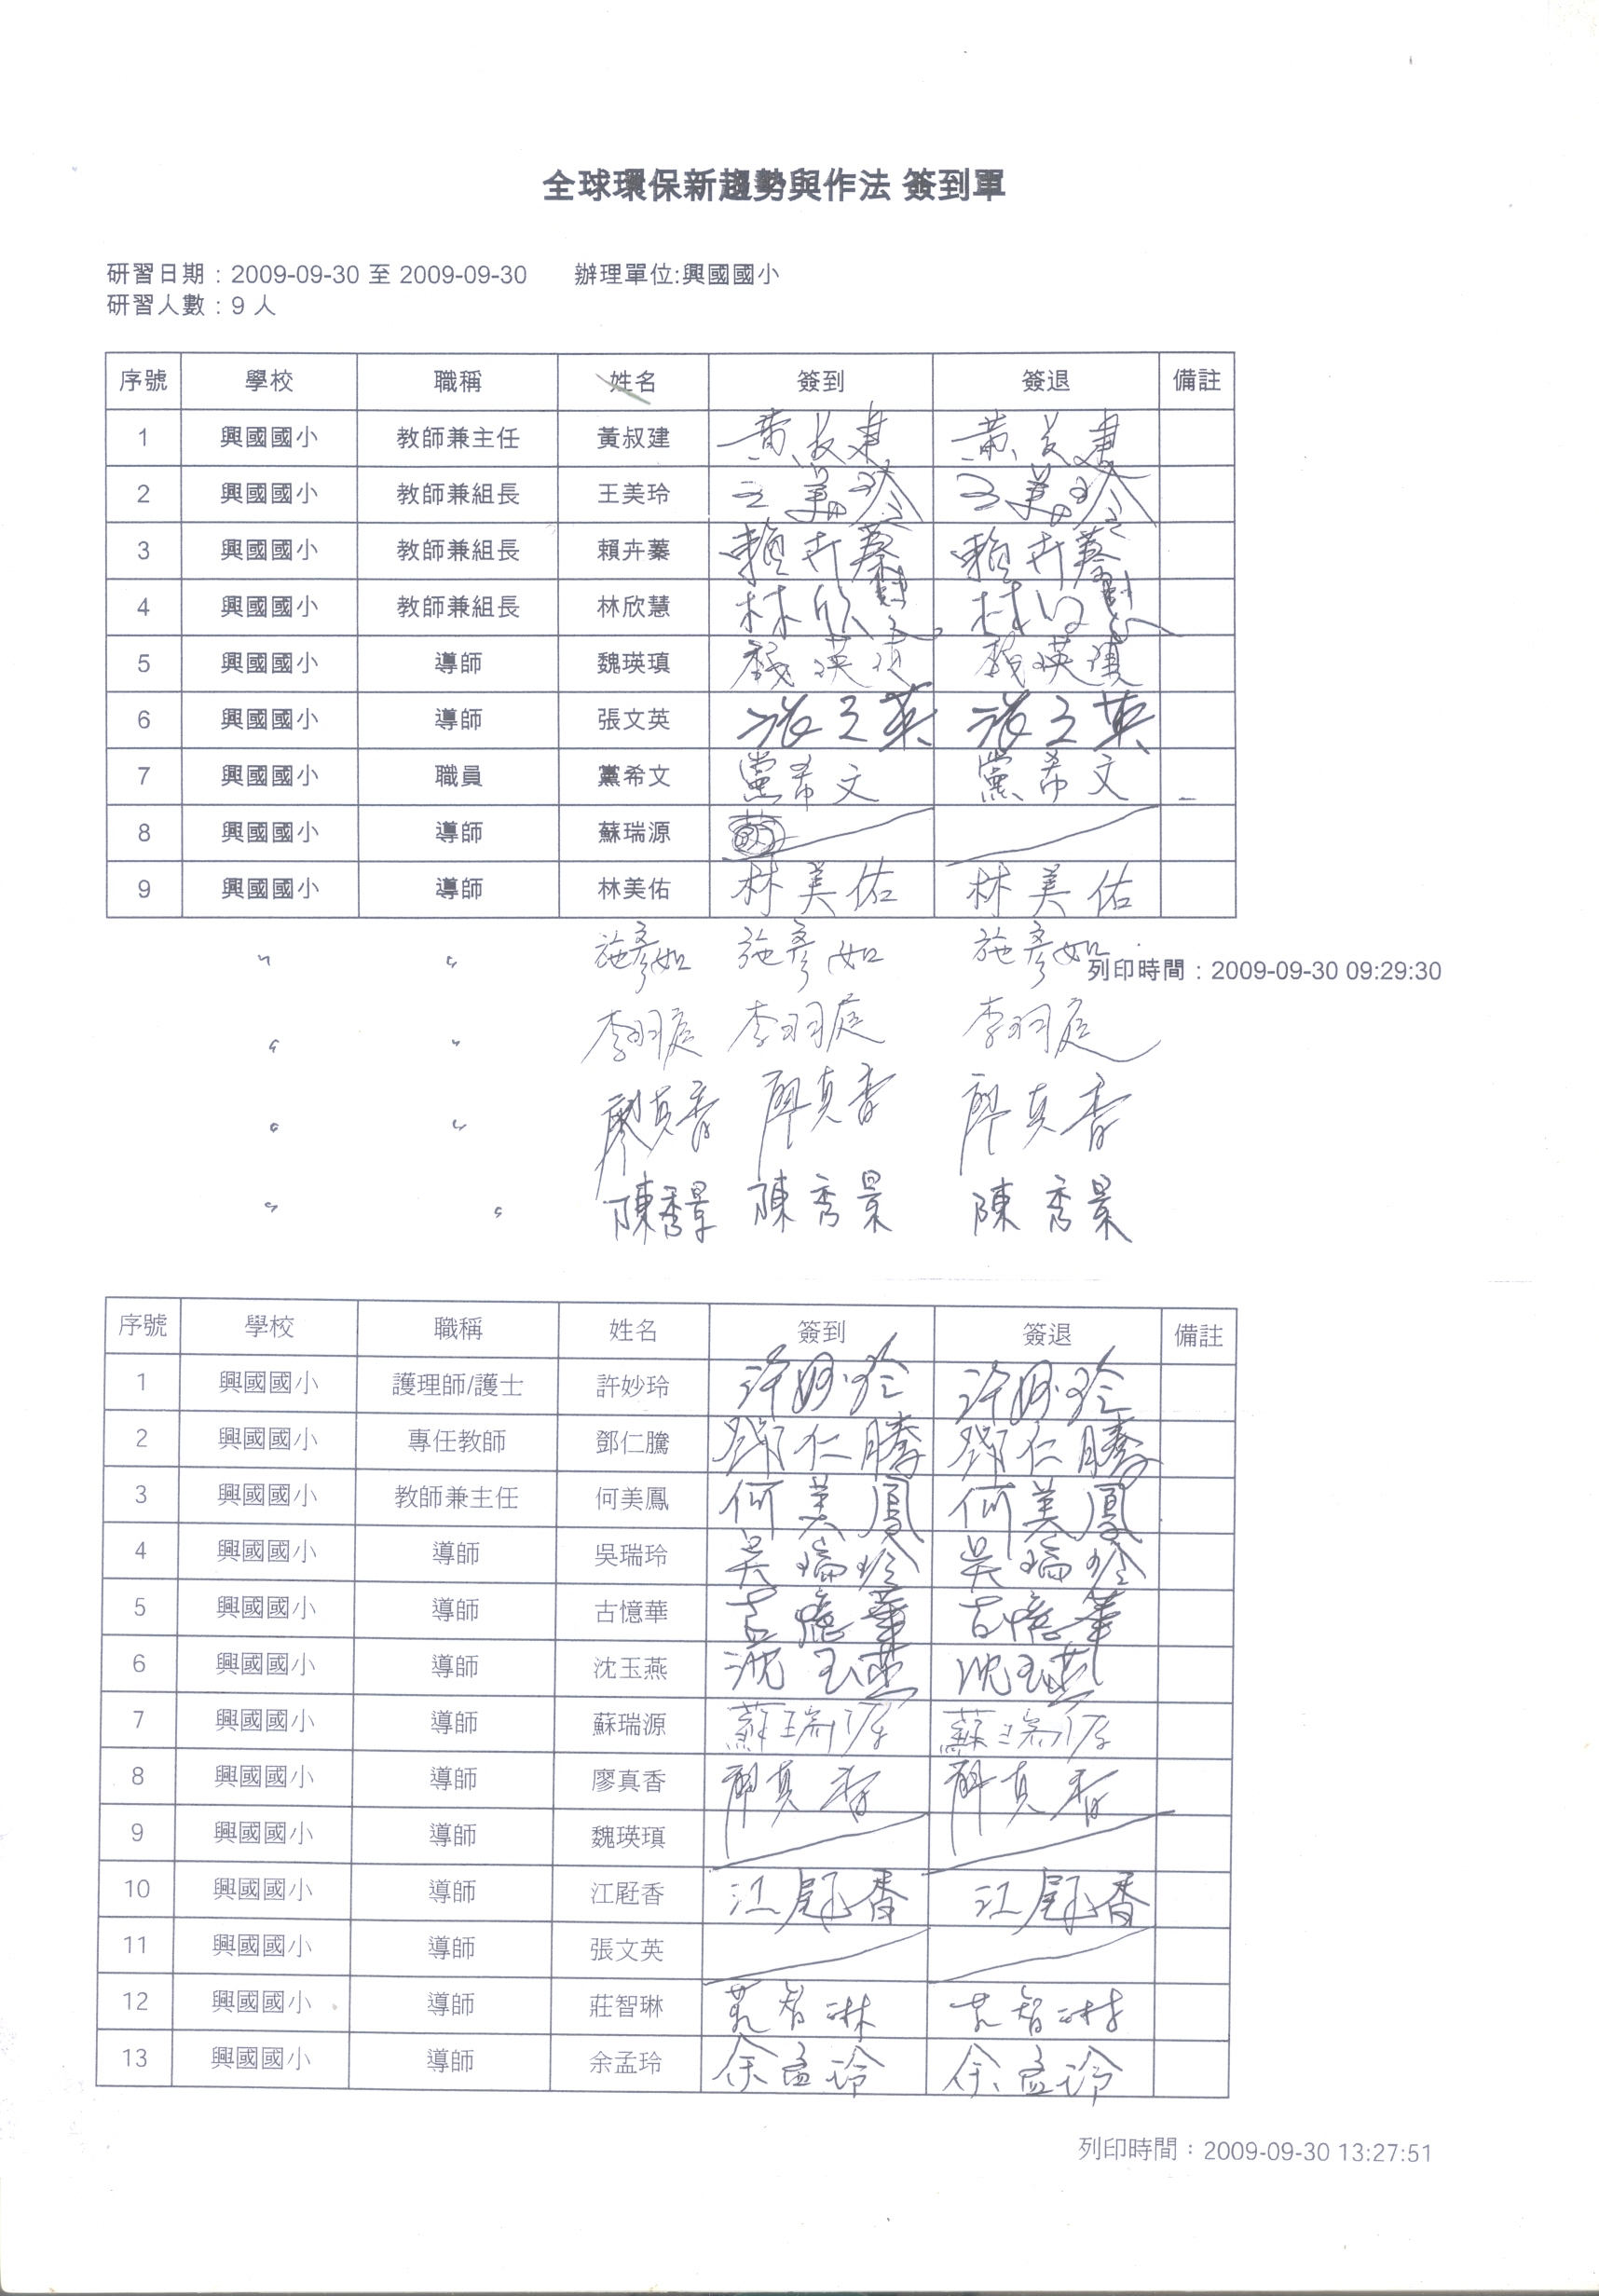 全球環保新趨勢與作法 簽到單
研習日期：2009-09-30 至 2009-09-30 辦理單位:興國國小
研習人數：9 人
序號 學校 職稱 姓名 簽到 簽退 備註
1 興國國小 教師兼主任 黃叔建 黃叔建 黃叔建
2 興國國小 教師兼組長 王美玲 王美玲 王美玲
3 興國國小 教師兼組長 賴卉蓁 賴卉蓁 賴卉蓁
4 興國國小 教師兼組長 林欣慧 林欣慧 林欣慧
5 興國國小 導師 魏瑛瑱 魏瑛瑱 魏瑛瑱
6 興國國小 導師 張文英 張文英 張文英
7 興國國小 職員 黨希文 黨希文 黨希文
8 興國國小 導師 蘇瑞源
9 興國國小 導師 林美佑 林美佑 林美佑
〃 〃 施彥如 施彥如 施彥如
列印時間：2009-09-30 09:29:30
〃 〃 李羽庭 李羽庭 李羽庭
〃 〃 廖真香 廖真香 廖真香
〃 〃 陳秀景 陳秀景 陳秀景
序號 學校 職稱 姓名 簽到 簽退 備註
1 興國國小 護理師/護士 許妙玲 許妙玲 許妙玲
2 興國國小 專任教師 鄧仁騰 鄧仁騰 鄧仁騰
3 興國國小 教師兼主任 何美鳳 何美鳳 何美鳳
4 興國國小 導師 吳瑞玲 吳瑞玲 吳瑞玲
5 興國國小 導師 古憶華 古憶華 古憶華
6 興國國小 導師 沈玉燕 沈玉燕 沈玉燕
7 興國國小 導師 蘇瑞源 蘇瑞源 蘇瑞源
8 興國國小 導師 廖真香 廖真香 廖真香
9 興國國小 導師 魏瑛瑱
10 興國國小 導師 江屘香 江屘香 江屘香
11 興國國小 導師 張文英
12 興國國小 導師 莊智琳 莊智琳 莊智琳
13 興國國小 導師 余孟玲 余孟玲 余孟玲
列印時間：2009-09-30 13:27:51